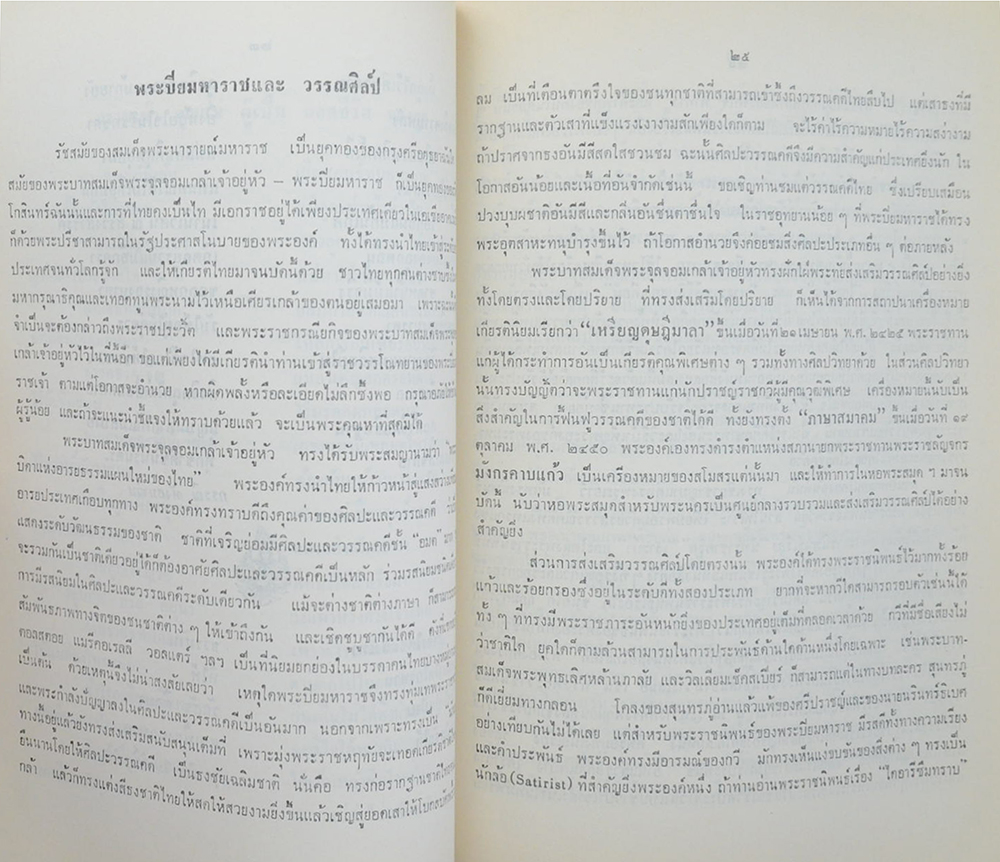 พระปิยมหาราชและ วรรณศิลป์
รัชสมัยของสมเด็จพระนารายณ์มหาราช เป็นยุคทองของกรุงศรีอยุธยาฉันใด
สมัยของพระบาทสมเด็จพระจุลจอมเกล้าเจ้าอยู่หัว – พระปิยมหาราช ก็เป็นยุคทองของ
โกสินทร์ฉันนั้นและการที่ไทยคงเป็นไท มีเอกราชอยู่ได้เพียงประเทศเดียวในเอเชีย
ก็ด้วยพระปรีชาสามารถในรัฐประศาสโนบายของพระองค์ ทั้งได้ทรงนำไทยเข้าสู่
ประเทศจนทั่วโลกรู้จัก และให้เกียรติไทยมาจนบัดนี้ด้วย ชาวไทยทุกคนต่างซาบซึ้ง
มหากรุณาธิคุณและเทอดทูนพระนามไว้เหนือเศียรเกล้าของตนอยู่เสมอมา เพราะฉะนั้น
จำเป็นจะต้องกล่าวถึงพระราชประวัติ และพระราชกรณียกิจของพระบาทสมเด็จพระ
เกล้าเจ้าอยู่หัวไว้ในที่นี้อีก ขอแต่เพียงได้มีเกียรตินำท่านเข้าสู่ราชวรรโณทยานของพระ
ราชเจ้า ตามแต่โอกาสจะอำนวย หากผิดพลั้งหรือละเอียดไม่ลึกซึ้งพอ กรุณาอภัยให้
ผู้รู้น้อย และถ้าจะแนะนำชี้แจงให้ทราบด้วยแล้ว จะเป็นพระคุณหาที่สุดมิได้
พระบาทสมเด็จพระจุลจอมเกล้าเจ้าอยู่หัว ทรงได้รับพระสมญานามว่า "พระ
บิดาแห่งอารยธรรมแผนใหม่ของไทย" พระองค์ทรงนำไทยให้ก้าวหน้าสู่แสงสว่าง
อารยประเทศเกือบทุกทาง พระองค์ทรงทราบดีถึงคุณค่าของศิลปะและวรรณคดี
แสดงระดับวัฒนธรรมของชาติ ชาติที่เจริญย่อมมีศิลปะและวรรณคดีชั้น "อมต"
จะรวมกันเป็นชาติเดียวอยู่ได้ก็ต้องอาศัยศิลปะและวรรณคดีเป็นหลัก ร่วมรสนิยมชนิด
การมีรสนิยมในศิลปะและวรรณคดีระดับเดียวกัน แม้จะต่างชาติต่างภาษา ก็สามารถ
สัมพันธภาพทางจิตของชนชาติต่าง ๆ ให้เข้าถึงกัน และเชิดชูบูชากันได้ดี ดังที่
ตอลสตอย แมรีคอเรลลี วอลแตร์ ฯลฯ เป็นที่นิยมยกย่องในบรรดาคนไทยบาง
เป็นต้น ด้วยเหตุนี้จึงไม่น่าสงสัยเลยว่า เหตุใดพระปิยมหาราชจึงทรงทุ่มเทพระ
และพระกำลังปัญญาลงในศิลปะและวรรณคดีเป็นอันมาก นอกจากเพราะทรงเป็น
ทางนี้อยู่แล้วยังทรงส่งเสริมสนับสนุนเต็มที่ เพราะมุ่งพระราชหฤทัยจะเทอดเกียรติ
ยืนนานโดยให้ศิลปะวรรณคดี เป็นธงชัยเฉลิมชาติ นั่นคือ ทรงก่อรากฐานชาติไทย
กล้า แล้วก็ทรงแต่งสีธงชาติไทยให้สดให้สวยงามยิ่งขึ้นแล้วเชิญสู่ยอดเสาให้โบก
๒๕
ลม เป็นที่เตือนตาตรึงใจของชนทุกชาติที่สามารถเข้าซึ้งถึงวรรณคดีไทยสืบไป แต่เสาธงที่มี
รากฐานและตัวเสาที่แข็งแรงเงางามสักเพียงใดก็ตาม จะไร้ค่าไร้ความหมายไร้ความสง่างาม
ถ้าปราศจากธงอันมีสีสดใสชวนชม ฉะนั้นศิลปะวรรณคดีจึงมีความสำคัญแก่ประเทศยิ่งนัก ใน
โอกาสอันน้อยและเนื้อที่อันจำกัดเช่นนี้ ขอเชิญท่านชมแต่วรรณคดีไทย ซึ่งเปรียบเสมือน
ปวงบุบผชาติอันมีสีและกลิ่นอันชื่นตาชื่นใจ ในราชอุทยานน้อย ๆ ที่พระปิยมหาราชได้ทรง
พระอุตสาหะทนุบำรุงขึ้นไว้ ถ้าโอกาสอำนวยจึงค่อยชมสิ่งศิลปะประเภทอื่น ๆ ต่อภายหลัง
พระบาทสมเด็จพระจุลจอมเกล้าเจ้าอยู่หัวทรงฝักใฝ่พระทัยส่งเสริมวรรณศิลป์อย่างยิ่ง
ทั้งโดยตรงและโดยปริยาย ที่ทรงส่งเสริมโดยปริยาย ก็เห็นได้จากการสถาปนาเครื่องหมาย
เกียรตินิยมเรียกว่า "เหรียญดุษฎีมาลา" ขึ้นเมื่อวันที่ ๒๑ เมษายน พ.ศ. ๒๔๒๕ พระราชทาน
แก่ผู้ได้กระทำการอันเป็นเกียรติคุณพิเศษต่าง ๆ รวมทั้งทางศิลปวิทยาด้วย ในส่วนศิลปวิทยา
นั้นทรงบัญญัติว่าจะพระราชทานแก่นักปราชญ์ราชกวีผู้มีคุณวุฒิพิเศษ เครื่องหมายนี้นับเป็น
สิ่งสำคัญในการฟื้นฟูวรรณคดีของชาติได้ดี ทั้งยังทรงตั้ง "ภาษาสมาคม" ขึ้นเมื่อวันที่ ๑๙
ตุลาคม พ.ศ. ๒๔๕๐ พระองค์เองทรงดำรงตำแหน่งสภานายกพระราชทานพระราชลัญจกร
มังกรคาบแก้ว เป็นเครื่องหมายของสโมสรแต่นั้นมา และให้ทำการในหอพระสมุด ฯ มาจน
บัดนี้ นับว่าหอพระสมุดสำหรับพระนครเป็นศูนย์กลางรวบรวมและส่งเสริมวรรณศิลป์ได้อย่าง
สำคัญยิ่ง
ส่วนการส่งเสริมวรรณศิลป์โดยตรงนั้น พระองค์ได้ทรงพระราชนิพนธ์ไว้มากทั้งร้อย
แก้วและร้อยกรองซึ่งอยู่ในระดับดีทั้งสองประเภท ยากที่จะหากวีใดสามารถรอบตัวเช่นนี้ได้
ทั้ง ๆ ที่ทรงมีพระราชภาระอันหนักยิ่งของประเทศอยู่เต็มที่ตลอกเวลาด้วย กวีที่มีชื่อเสียงไม่
ว่าชาติใด ยุคใดก็ตามล้วนสามารถในการประพันธ์ด้านใดด้านหนึ่งโดยเฉพาะ เช่นพระบาท-
สมเด็จพระพุทธเลิศหล้านภาลัย และวิลเลียมเช็คสเปียร์ ก็สามารถแต่ในทางบทละคร สุนทรภู่
ก็ดีเยี่ยมทางกลอน โคลงของสุนทรภู่อ่านแล้วแพ้ของศรีปราชญ์และของนายนรินทร์ธิเบศ
อย่างเทียบกันไม่ได้เลย แต่สำหรับพระราชนิพนธ์ของพระปิยมหาราช มีรสทั้งทางความเรียง
และคำประพันธ์ พระองค์ทรงมีอารมณ์ของกวี มักทรงเห็นแง่ขบขันของสิ่งต่าง ๆ ทรงเป็น
นักล้อ (Satirist) ที่สำคัญยิ่งพระองค์หนึ่ง ถ้าท่านอ่านพระราชนิพนธ์เรื่อง "ไดอารีซึมทราบ"